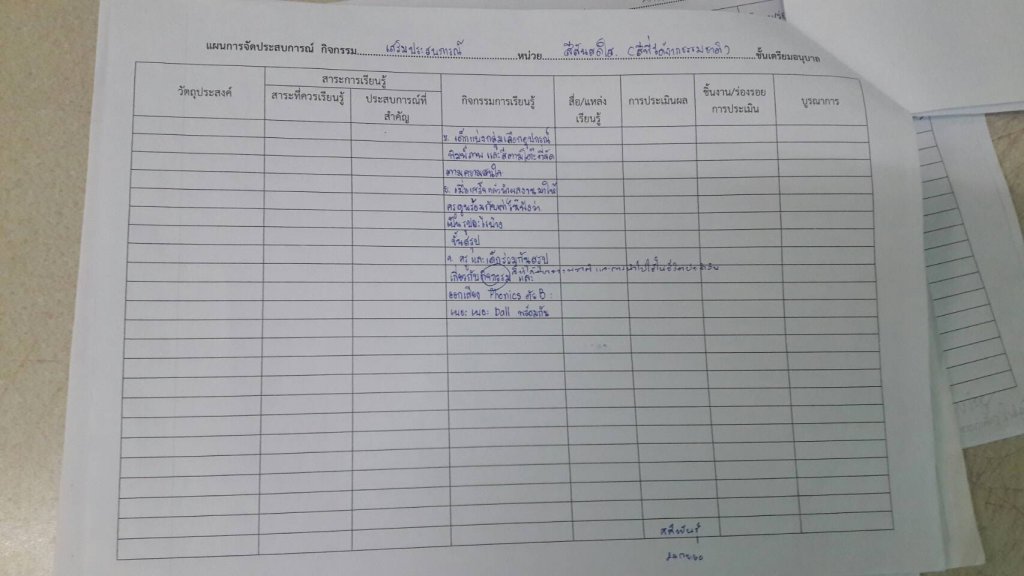 แผนการจัดประสบการณ์ กิจกรรม.....เสริมประสบการณ์.....หน่วย.....สีสันสดใส (สีที่ได้จากธรรมชาติ).....ชั้นเตรียมอนุบาล
วัตถุประสงค์
สาระการเรียนรู้
สาระที่ควรเรียนรู้
ประสบการณ์ที่
สำคัญ
กิจกรรมการเรียนรู้
สื่อ/แหล่ง
เรียนรู้
การประเมินผล
ชิ้นงาน/ร่องรอย
การประเมิน
บูรณาการ
เด็กแบ่งกลุ่มเลือกอุปกรณ์
พิมพ์ภาพ และสีตาม
ตามความสนใจ
เมื่อเสร็จแล้วนำผลงานมาให้
ครูดูพร้อมกับเล่าให้ฟังว่า
เป็นรูปอะไรบ้าง
ขั้นสรุป
ครู และเด็กร่วมกันสรุป
เกี่ยวกับกิจกรรม
ออกเสียง Phonics ตัว B :
เบอะ เบอะ Ball พร้อมกัน